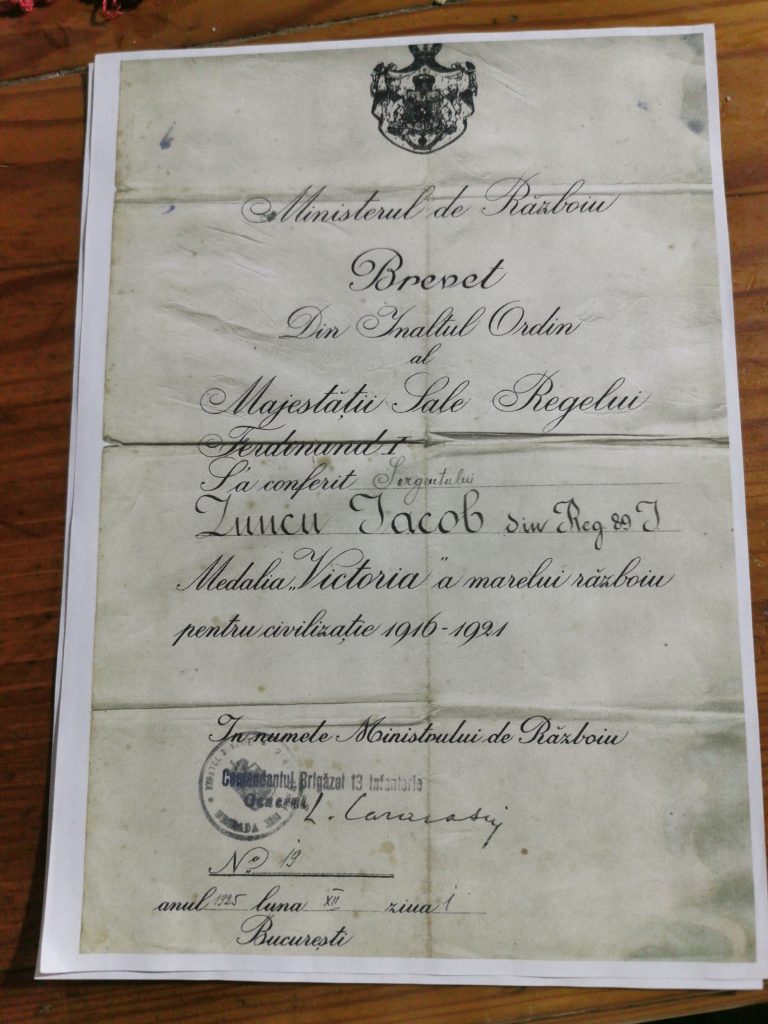 Ministerul de Războiu
Brevet
Din Inaltul Ordin
al
Majestății Sale Regelui
Ferdinand I
S'a conferit Sergentului
Zuncu Iacob din Reg 89 I
Medalia „Victoria" a marelui război
pentru civilizație 1916-1921
In numele Ministrului de Războiu
Comandantul Brigăzei 13 Infanterie
General L.
No. 19
anul 1925 luna XII ziua 1
București